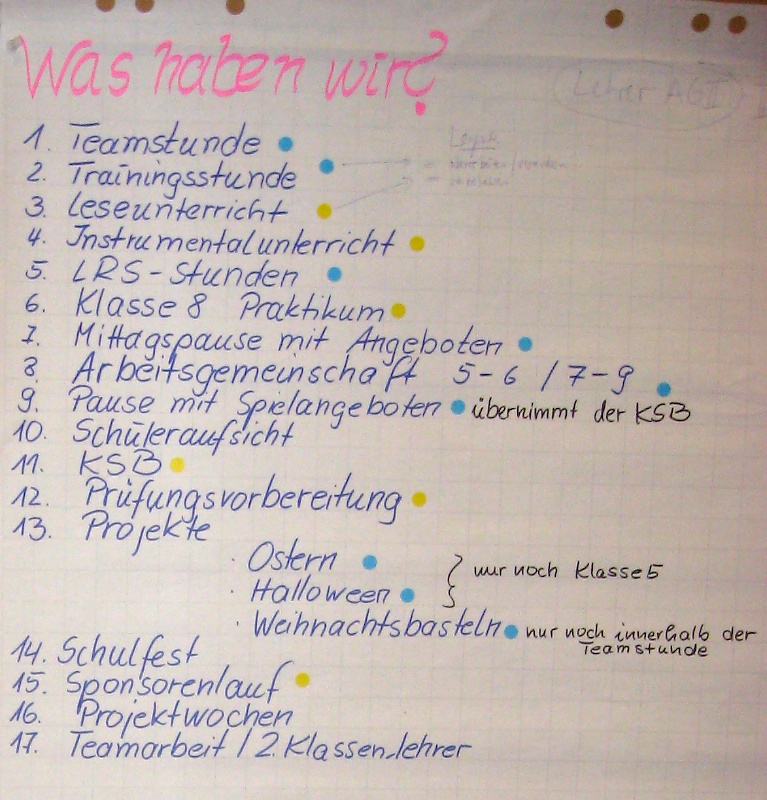 Was haben wir?
Lehrer AG II
1. Teamstunde
2. Trainingsstunde
3. Leseunterricht
4. Instrumentalunterricht
5. LRS-Stunden
6. Klasse 8 Praktikum
7. Mittagspause mit Angeboten
8. Arbeitsgemeinschaft 5-6 / 7-9
9. Pause mit Spielangeboten übernimmt der KSB
10. Schüleraufsicht
11. KSB
12. Prüfungsvorbereitung
13. Projekte
· Ostern
nur noch Klasse 5
· Halloween
· Weihnachtsbasteln nur noch innerhalb der
Teamstunde
14. Schulfest
15. Sponsorenlauf
16. Projektwochen
17. Teamarbeit / 2. Klassenlehrer